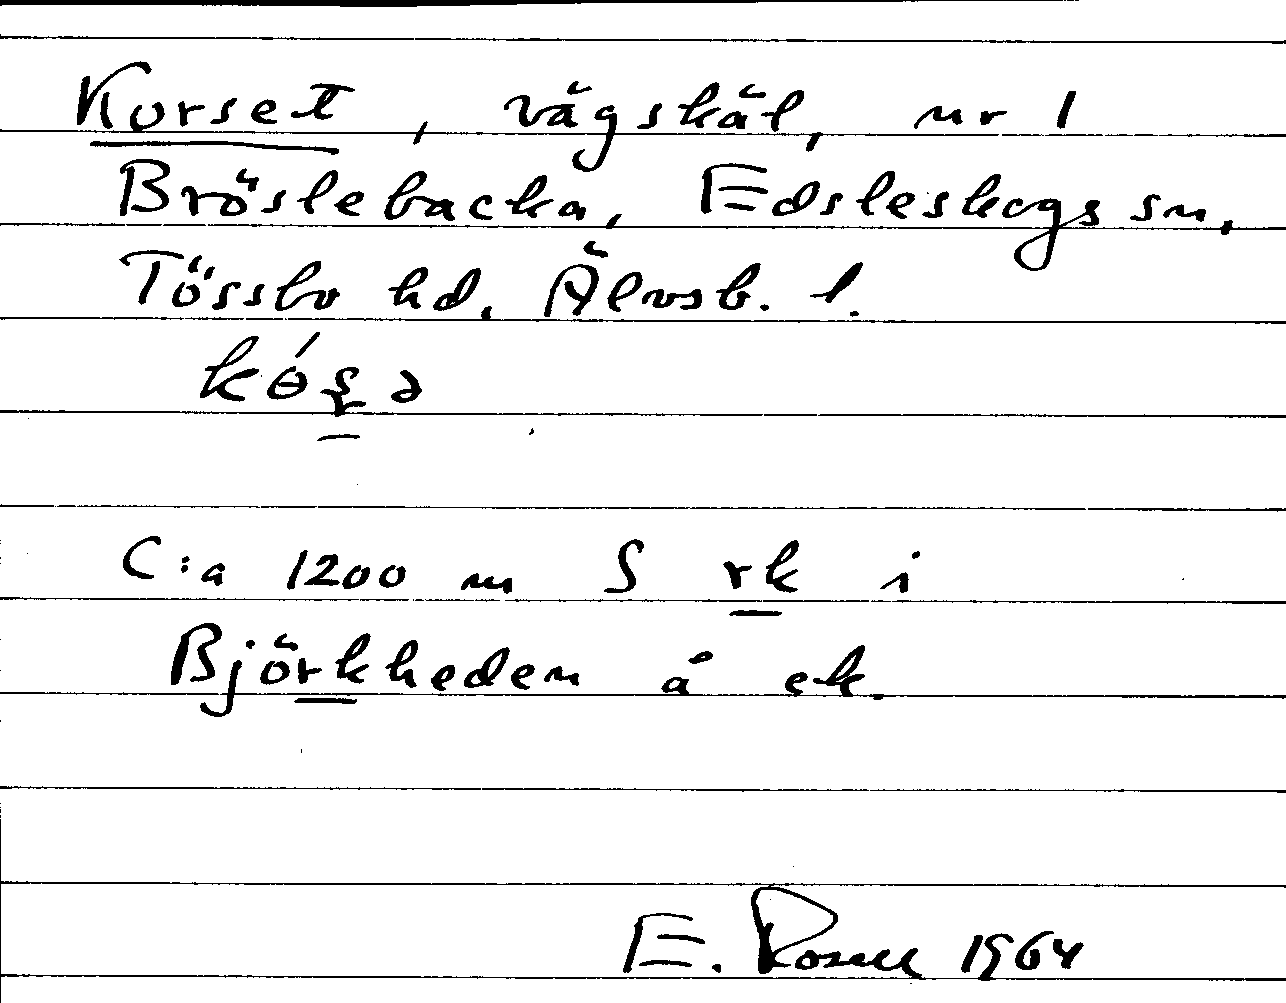 Korset, vägskäl, nr 1
Bröslebacka, Edsleskogs sn,
Tössbo hd. Älvsb. l.
C:a 1200 m S rk i
Björkheden å ek.
E. Rosell 1964